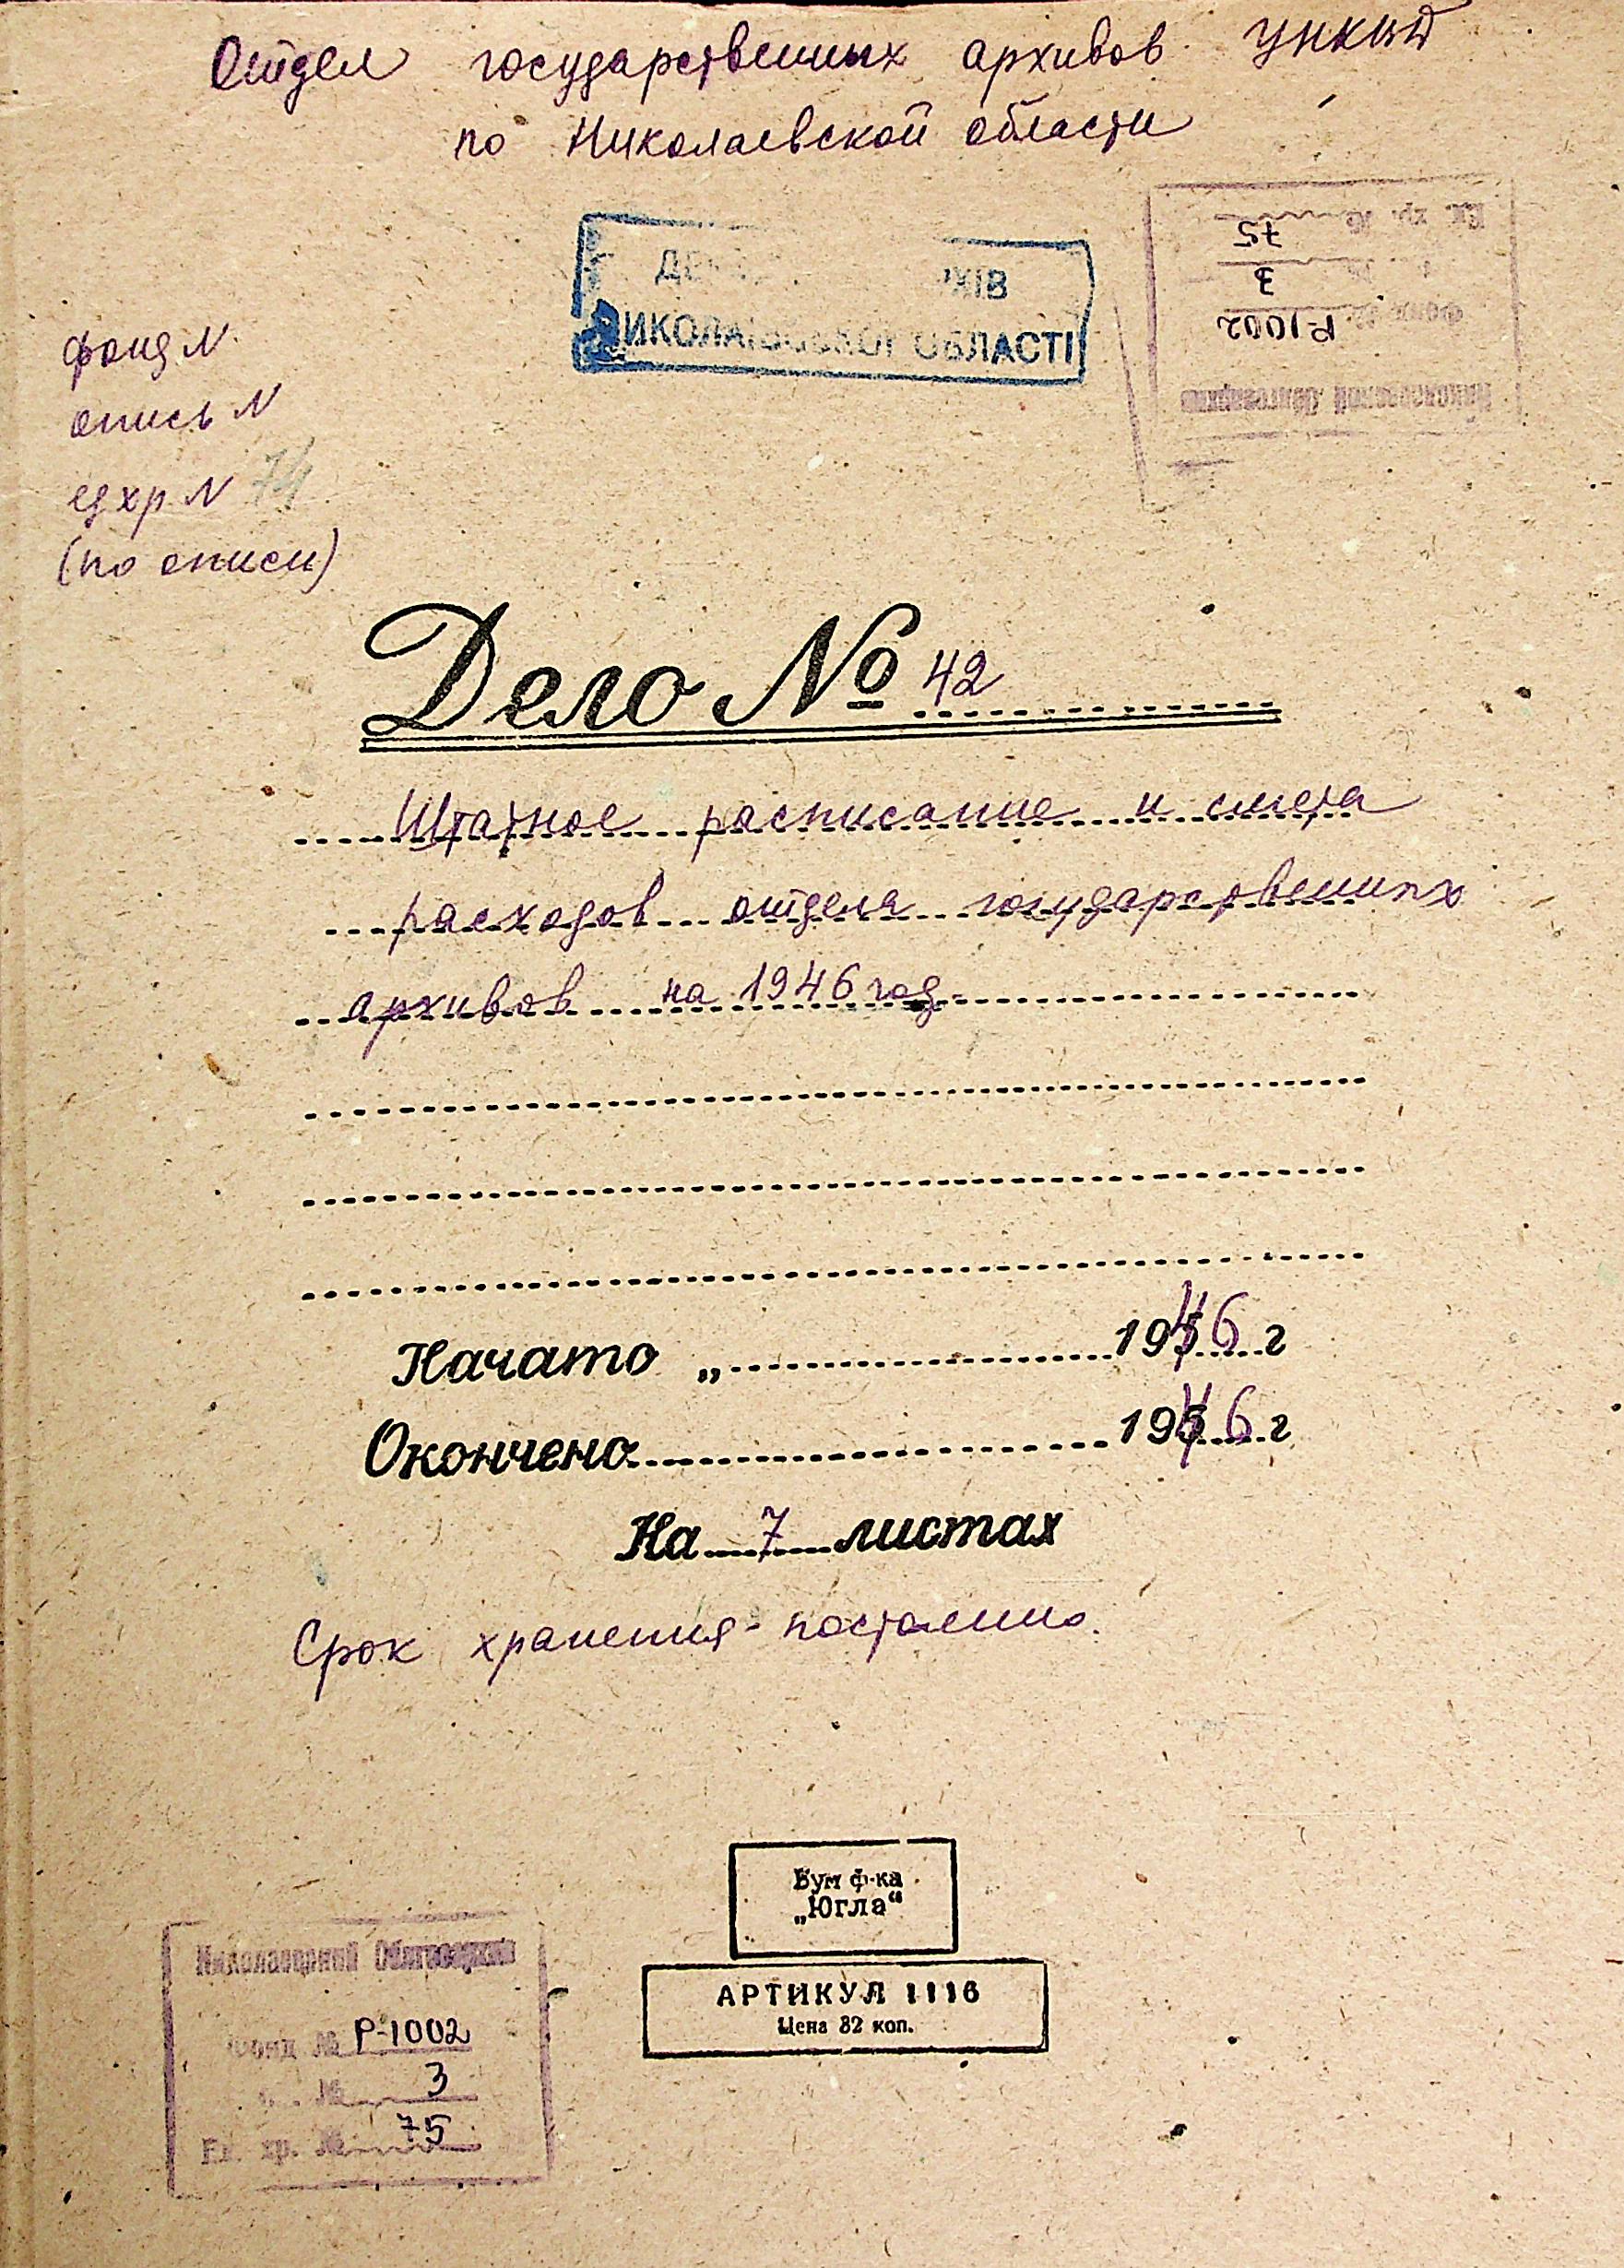 Отдел государственных архивов УНКВД
по Николаевской области
Ед. хр. № 75
3
Фонд № Р-1002
Николаевский Облгосархив
АРХІВ
МИКОЛАЇВСЬКОЇ ОБЛАСТІ
фонд N
опись N
ед хр N 74
(по описи)
Дело № 42
Штатное расписание и смета
расходов отдела государственных
архивов на 1946 год.
Начато „ 1946 г
Окончено 1946 г
На 7 листах
Срок хранения - постоянно.
Бум ф-ка
„Югла“
АРТИКУЛ 1116
Цена 82 коп.
Николаевский Облгосархив
Фонд № Р-1002
№ 3
Ед. хр. № 75